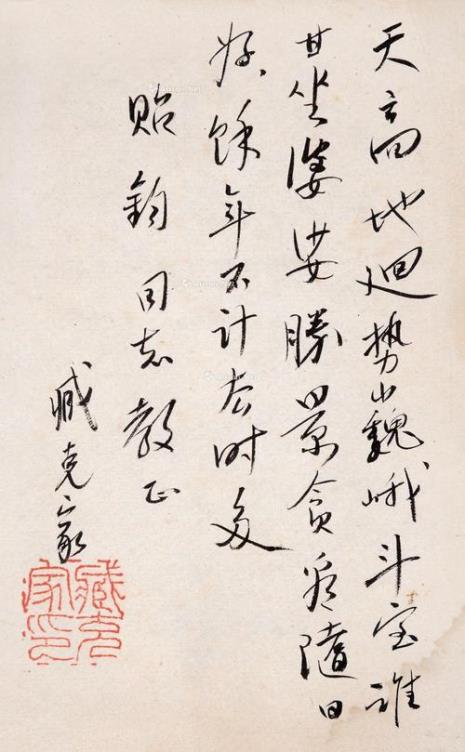 天高地迥势巍峨斗室谁
甘坐婆娑勝景貪看隨日
好馀年不计去时多
貽鈞同志教正
臧克家
臧克家印